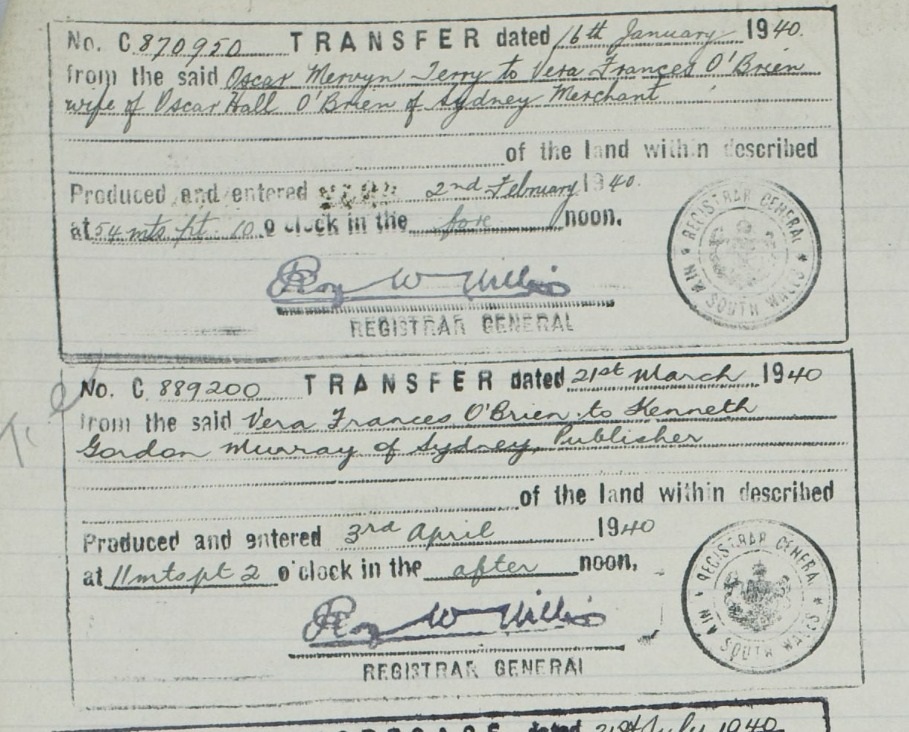 No. C 870950 TRANSFER dated 16th January 1940.
from the said Oscar Mervyn Terry to Vera Frances O'Brien
wife of Oscar Hall O'Brien of Sydney Merchant
of the land within described
Produced and entered 2nd February 1940.
at 54 mts pt. 10 o'clock in the fore noon.
REGISTRAR GENERAL
SOUTH WALES
Roy W Willis
REGISTRAR GENERAL
No. C 889200 TRANSFER dated 21st March 1940
from the said Vera Frances O'Brien to Kenneth
Gordon Murray of Sydney, Publisher
of the land within described
Produced and entered 3rd April 1940
at 11 mts pt 2 o'clock in the after noon.
REGISTRAR GENERAL
SOUTH WALES
Roy W Willis
REGISTRAR GENERAL
dated 21st July 1940